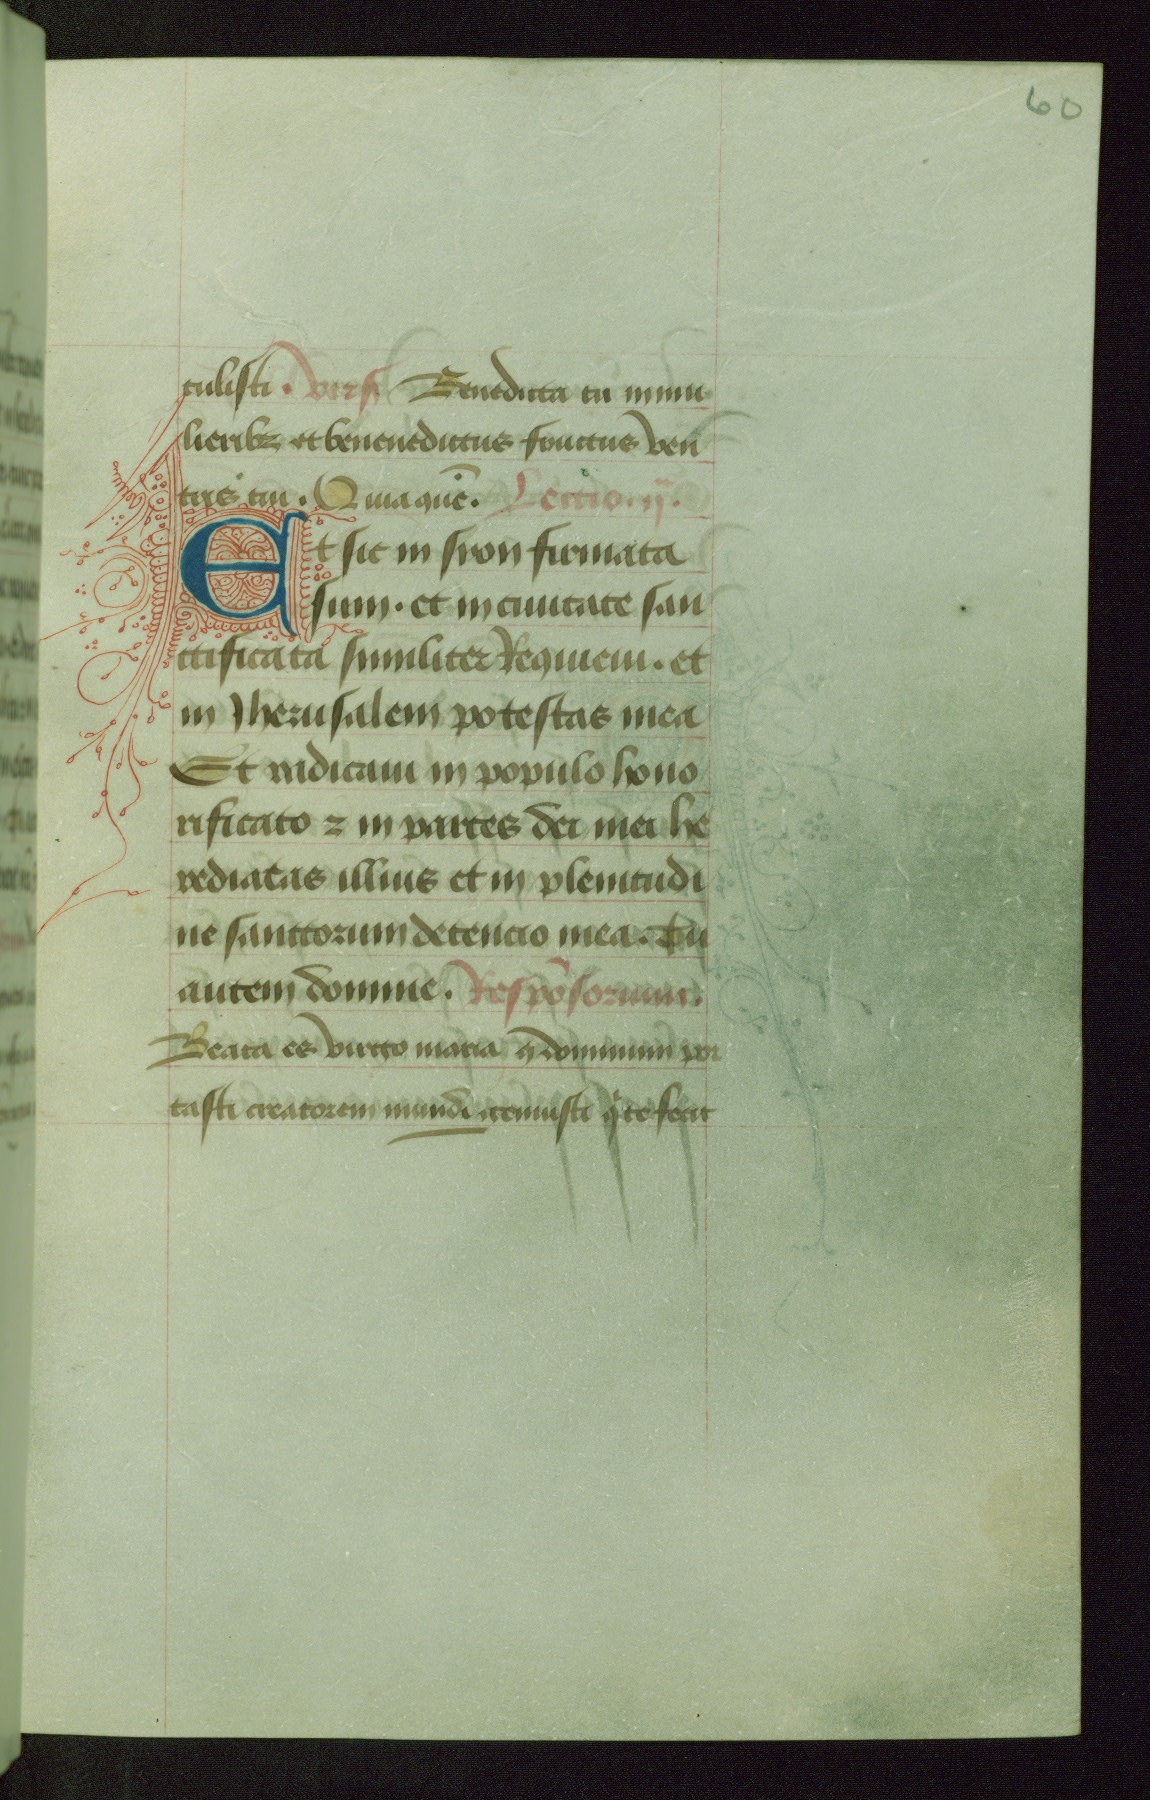 60
tulisti . vers Benedicta tu in mu
lieribz et benenedictus fructus ven
tris tui . Quia quē . Lectio . ij .
Et sic in syon firmata
sum . et in ciuitate san
ctificata similiter Requieui . et
in Jherusalem potestas mea
Et radicaui in populo hono
rificato ⁊ in partes dei mei he
rediatas illius et in plenitudi
ne sanctorum detencio mea . Tu
autem domine . Respōsorium .
Beata es virgo maria q dominum por
tasti creatorem mundi genuisti q te fecit